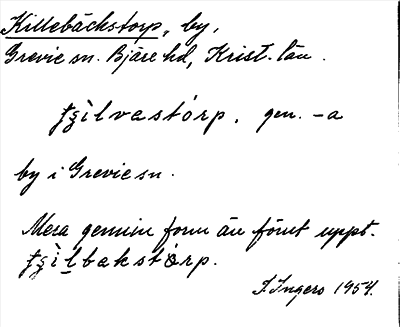 Killebäckstorp, by,
Grevie sn. Bjäre hd, Krist. län.
ƭʂìlvastórp, gen. -a
by i Grevie sn.
Mera genuin form än förut uppt.
ƭʂìlbakstórp.
I. Ingers 1954.